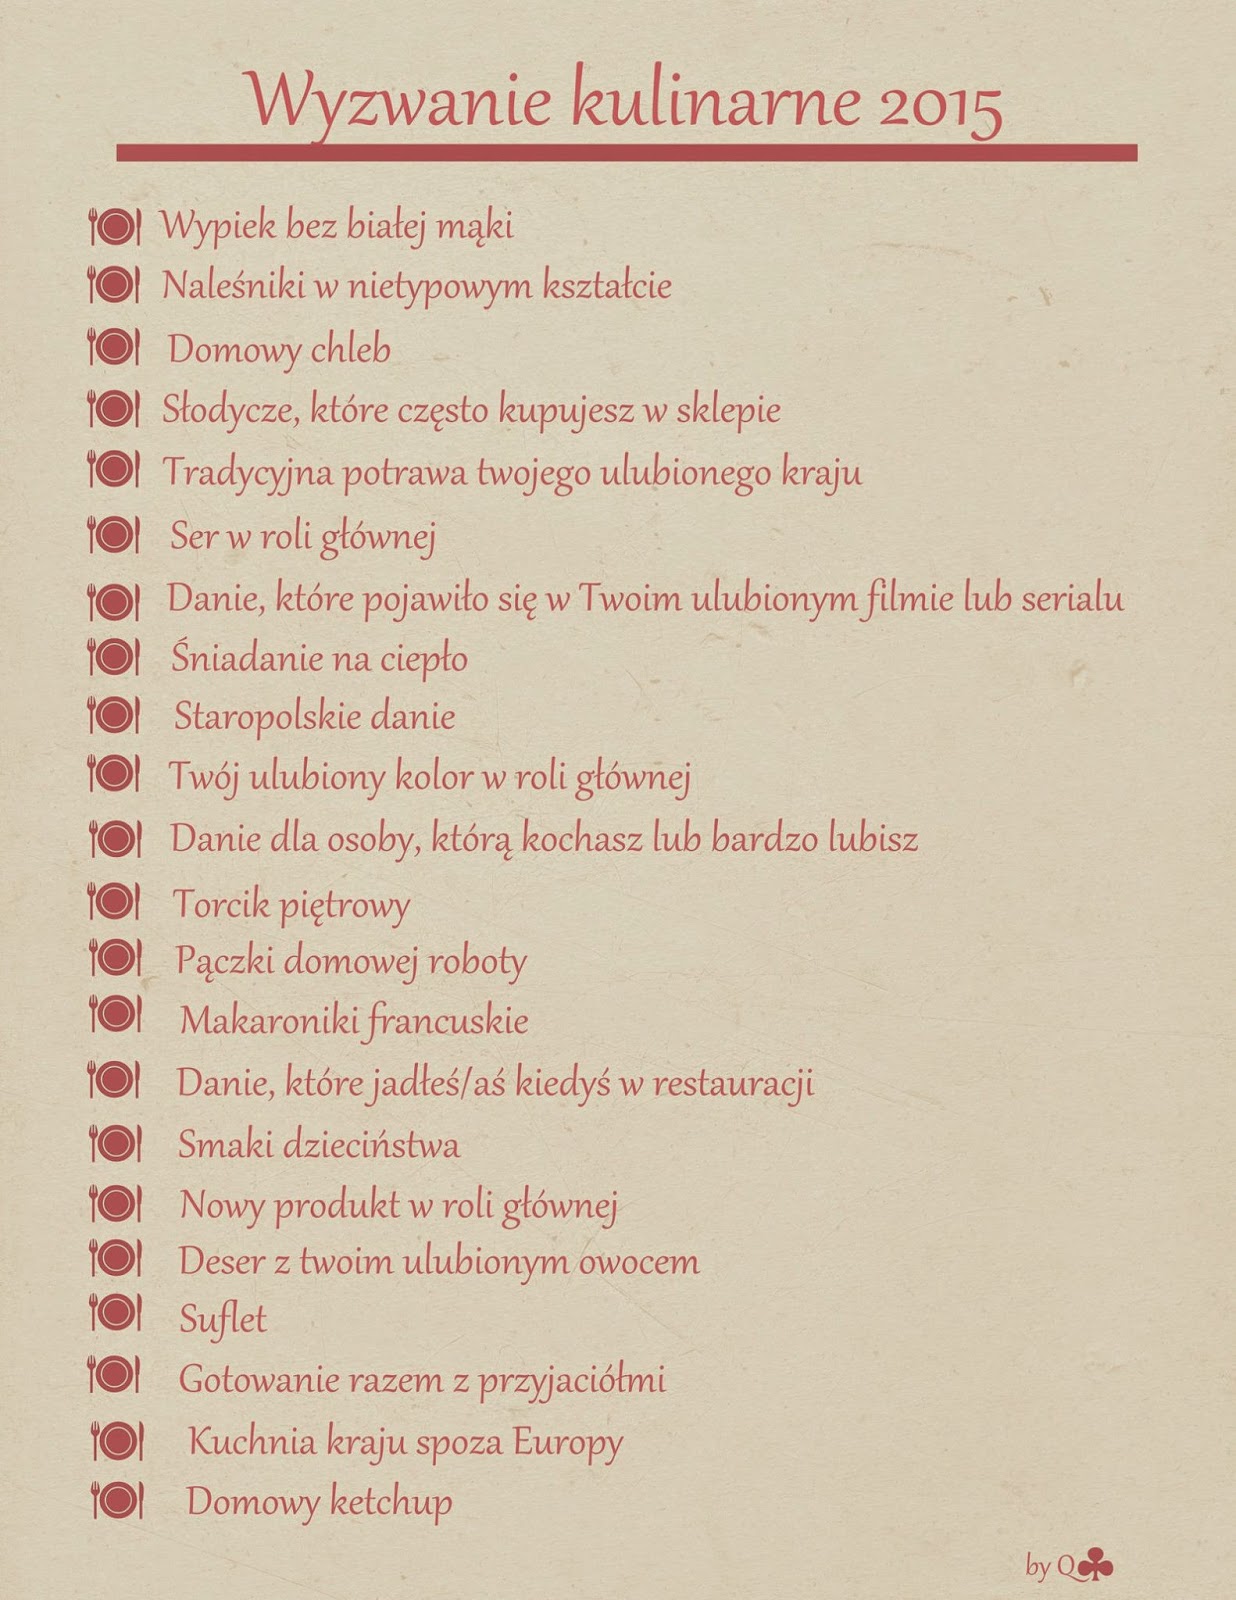 Wyzwanie kulinarne 2015
Wypiek bez białej mąki
Naleśniki w nietypowym kształcie
Domowy chleb
Słodycze, które często kupujesz w sklepie
Tradycyjna potrawa twojego ulubionego kraju
Ser w roli głównej
Danie, które pojawiło się w Twoim ulubionym filmie lub serialu
Śniadanie na ciepło
Staropolskie danie
Twój ulubiony kolor w roli głównej
Danie dla osoby, którą kochasz lub bardzo lubisz
Torcik piętrowy
Pączki domowej roboty
Makaroniki francuskie
Danie, które jadłeś/aś kiedyś w restauracji
Smaki dzieciństwa
Nowy produkt w roli głównej
Deser z twoim ulubionym owocem
Suflet
Gotowanie razem z przyjaciółmi
Kuchnia kraju spoza Europy
Domowy ketchup
by Q♣